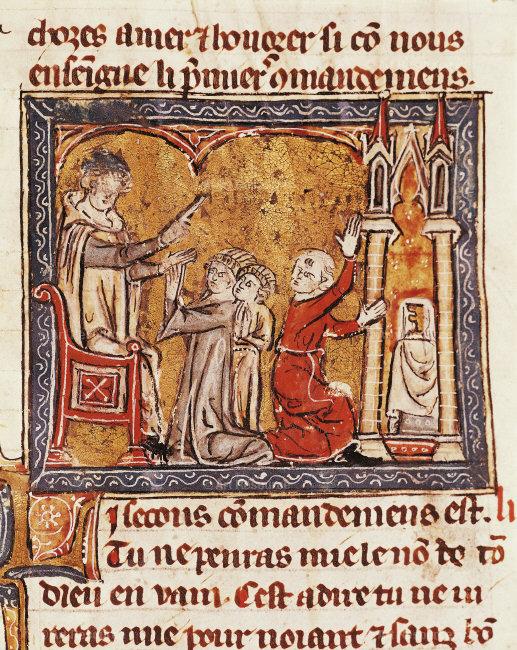 chozes amer ⁊ honorer si cō nous
enseigne li pmier ꝯmandemens.
Li secons cōmandemens est. li
Tu ne penras mie le nō de tō
dieu en vain. Cest a dire tu ne iu
reras mie pour noiant ⁊ sanz bō